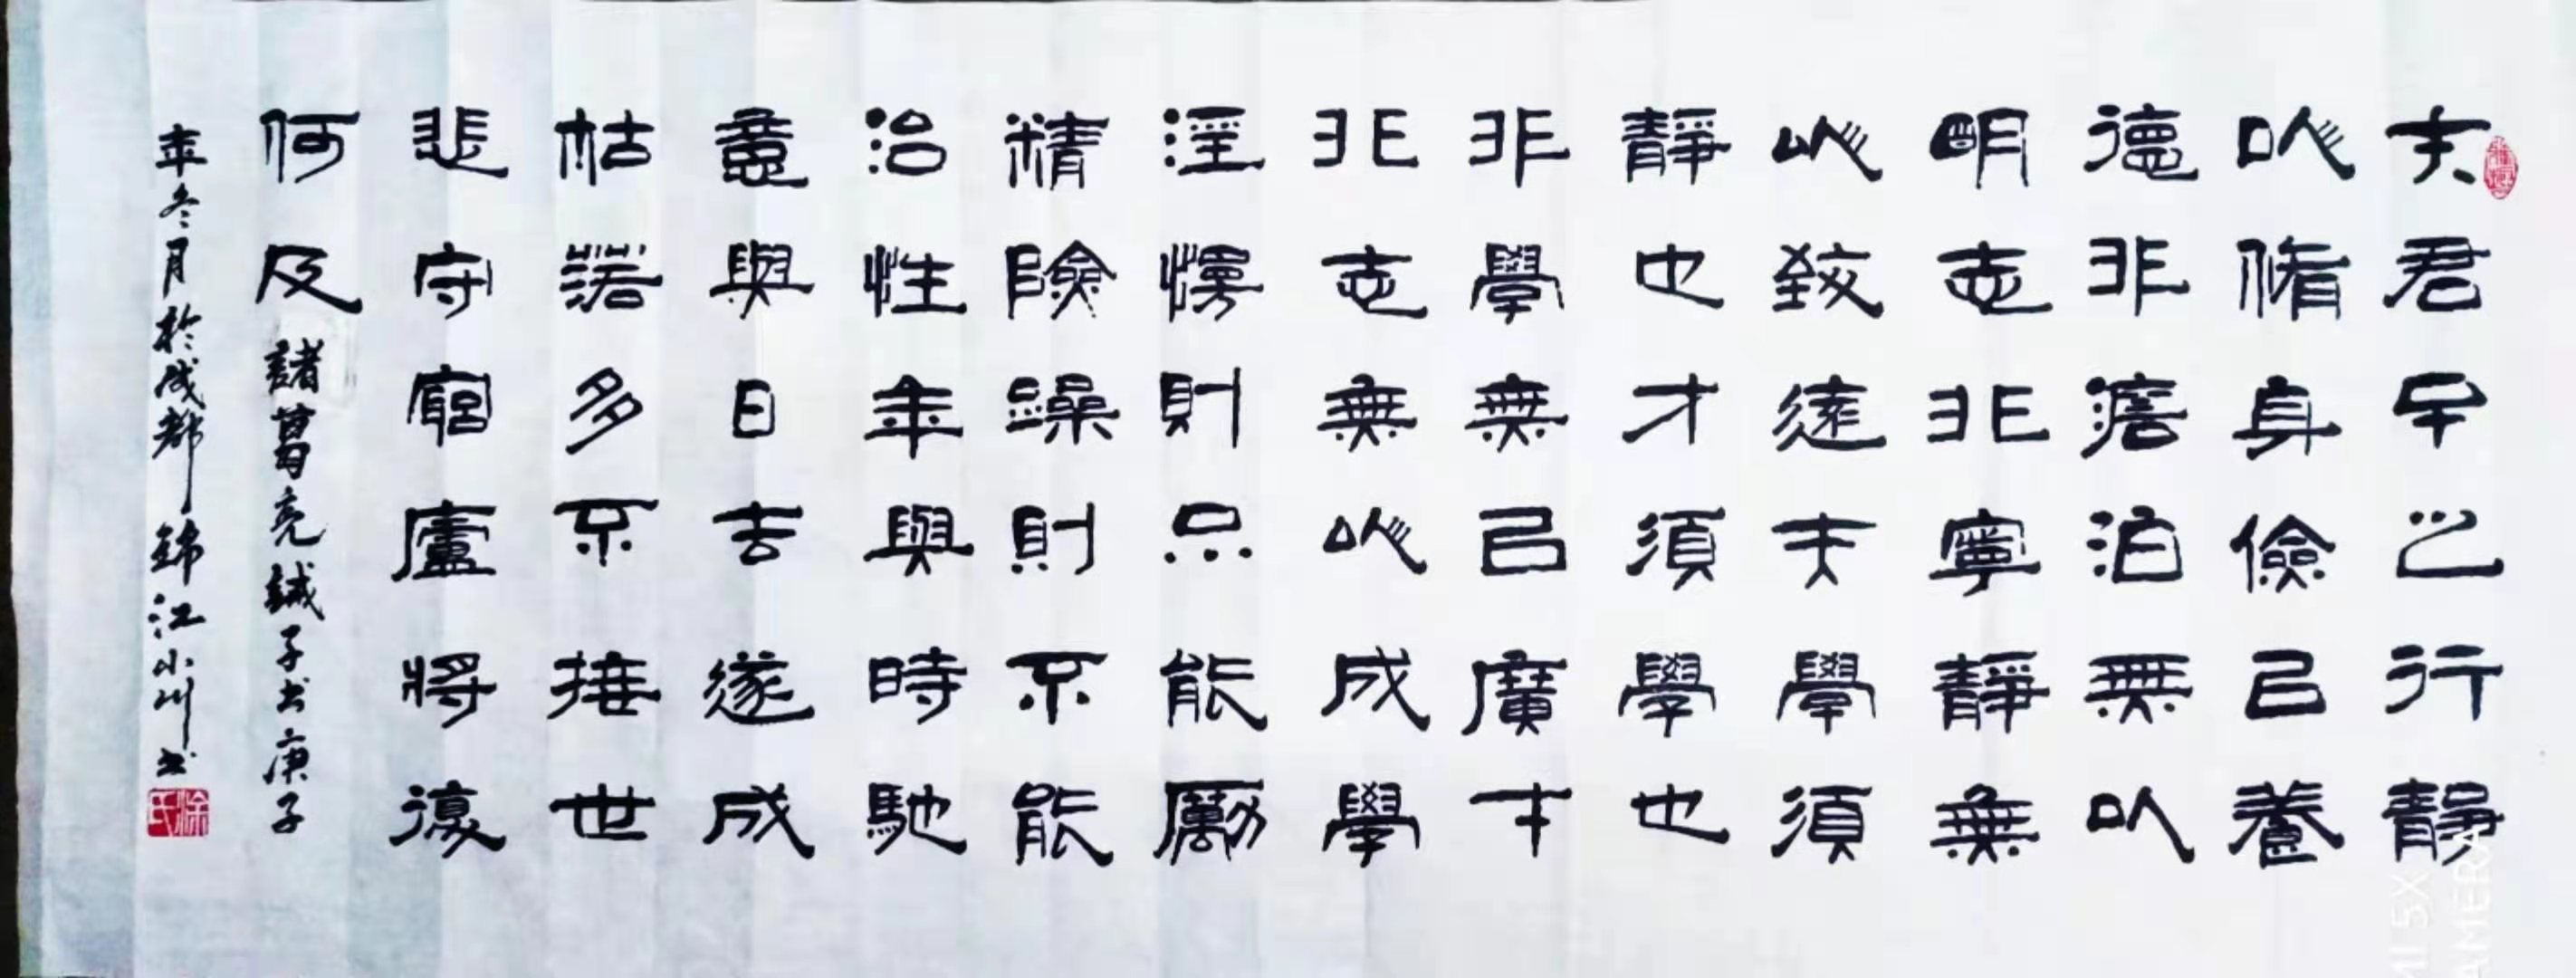 夫君子之行靜
以脩身儉以養
德非澹泊無以
明志非寧靜無
以致遠夫學須
靜也才須學也
非學無以廣才
非志無以成學
淫慢則不能勵
精險躁則不能
治性年與時馳
意與日去遂成
枯落多不接世
悲守窮廬將復
何及 諸葛亮誡子书庚子
年冬月於成都錦江小川书
涂氏
MI 5X
AMERA